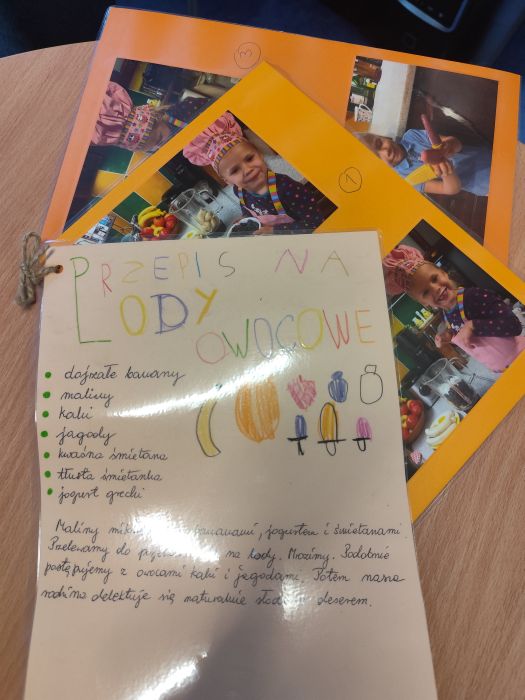 3
1
PRZEPIS NA
LODY
OWOCOWE
dojrzałe banany
maliny
kaki
jagody
kwaśna śmietana
tłusta śmietanka
jogurt grecki
Maliny bananami, jogurtem i śmietanami.
Przelewamy do na lody. Mrozimy. Podobnie
postępujemy z owocami kaki i jagodami. Potem nasza
rodzina delektuje się naturalnie deserem.